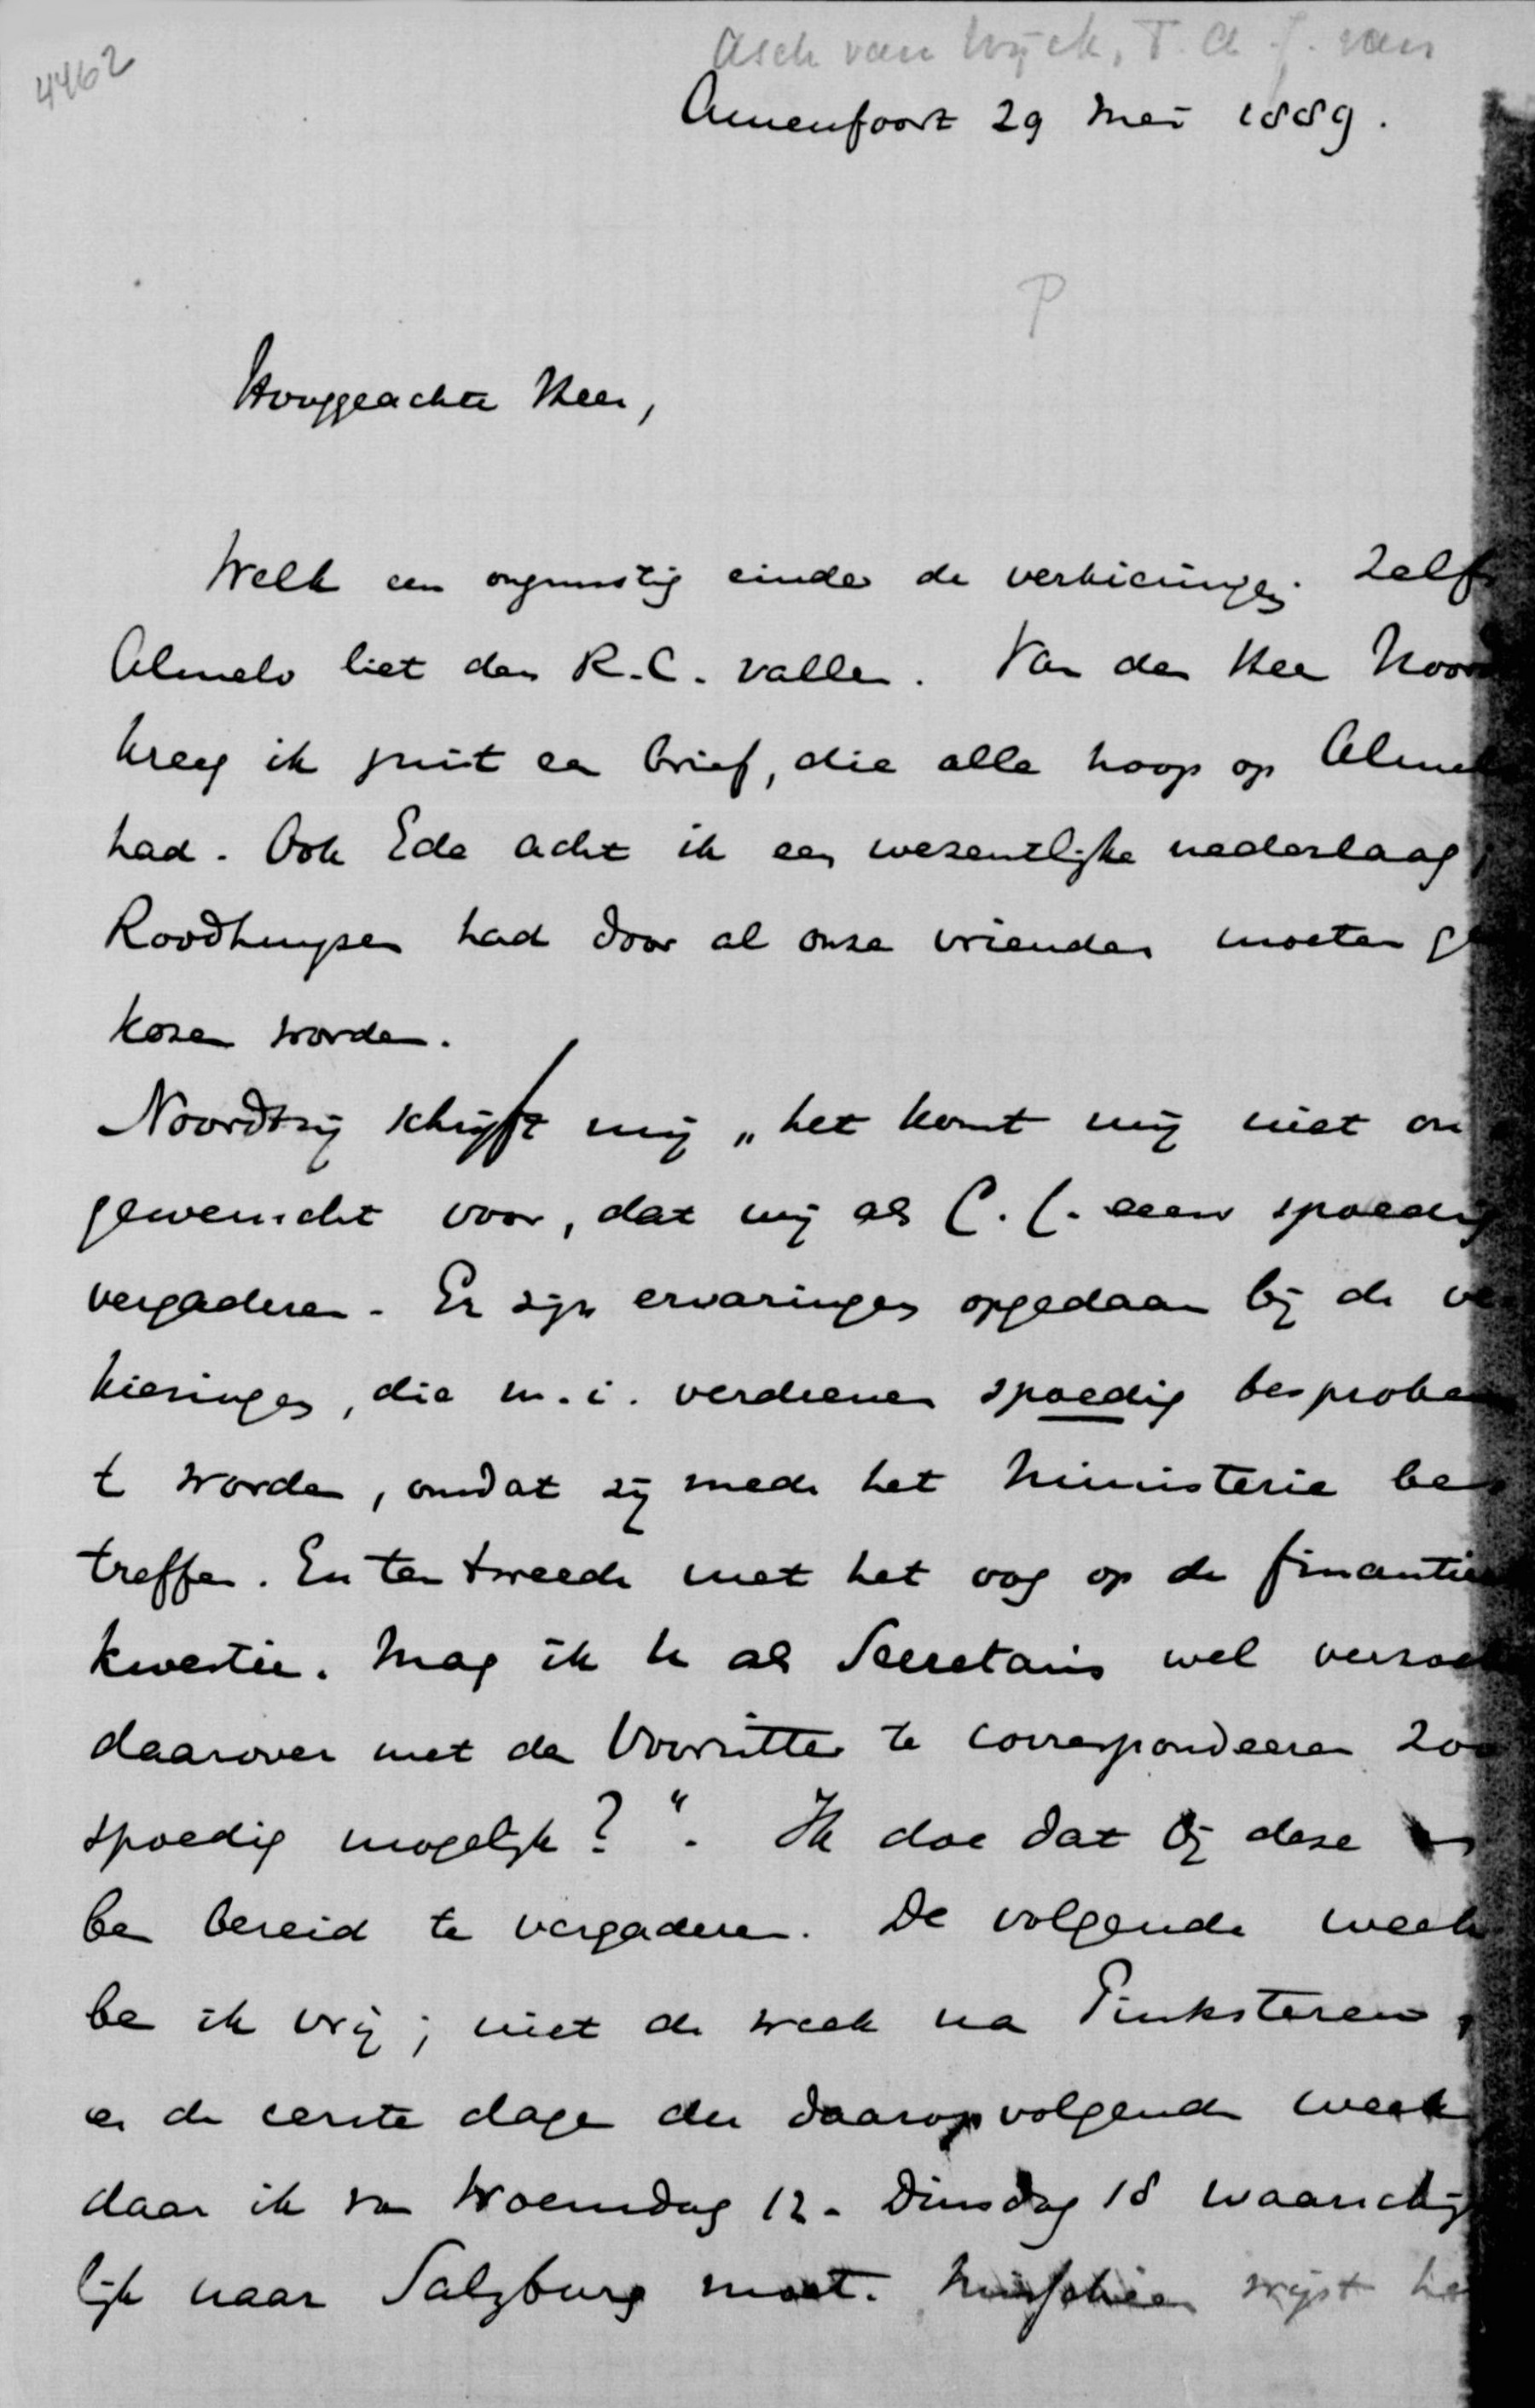 4462
Asch van Wijck, T. A. J. van
Amersfoort 29 Mei 1889.
P
Hooggeachte Heer,
Welk een ongunstig einde der verkiezingen. Zelfs
Almelo liet den R.C. vallen. Van den Heer Noord
kreeg ik juist een brief, die alle hoop op Almelo
had. Ook Ede acht ik een wezentlijke nederlaag,
Roodhuyzen had door al onze vrienden moeten ge
kozen worden.
Noordtzij schrijft mij „het komt mij niet on
gewenscht voor, dat wij als C.C. eens spoedig
vergaderen. Er zijn ervaringen opgedaan bij de ver
kiezingen, die m.i. verdienen spoedig besproken
te worden, omdat zij mede het Ministerie be
treffen. En ten tweede met het oog op de finantieele
kwestie. Mag ik U als Secretaris wel verzoeken
daarover met den Voorzitter te correspondeeren zoo
spoedig mogelijk?". Ik doe dat bij deze en
ben bereid te vergaderen. De volgende week
ben ik vrij; niet de week na Pinksteren,
en de eerste dagen der daaropvolgende week
daar ik van Woensdag 12 - Dinsdag 18 waarschijn
lijk naar Salzburg moet. Misschien wijst het